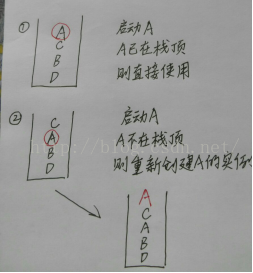 ①
A
C
B
D
启动A
A已在栈顶
则直接使用
②
C
A
B
D
启动A
A不在栈顶
则重新创建A的实例
A
C
A
B
D